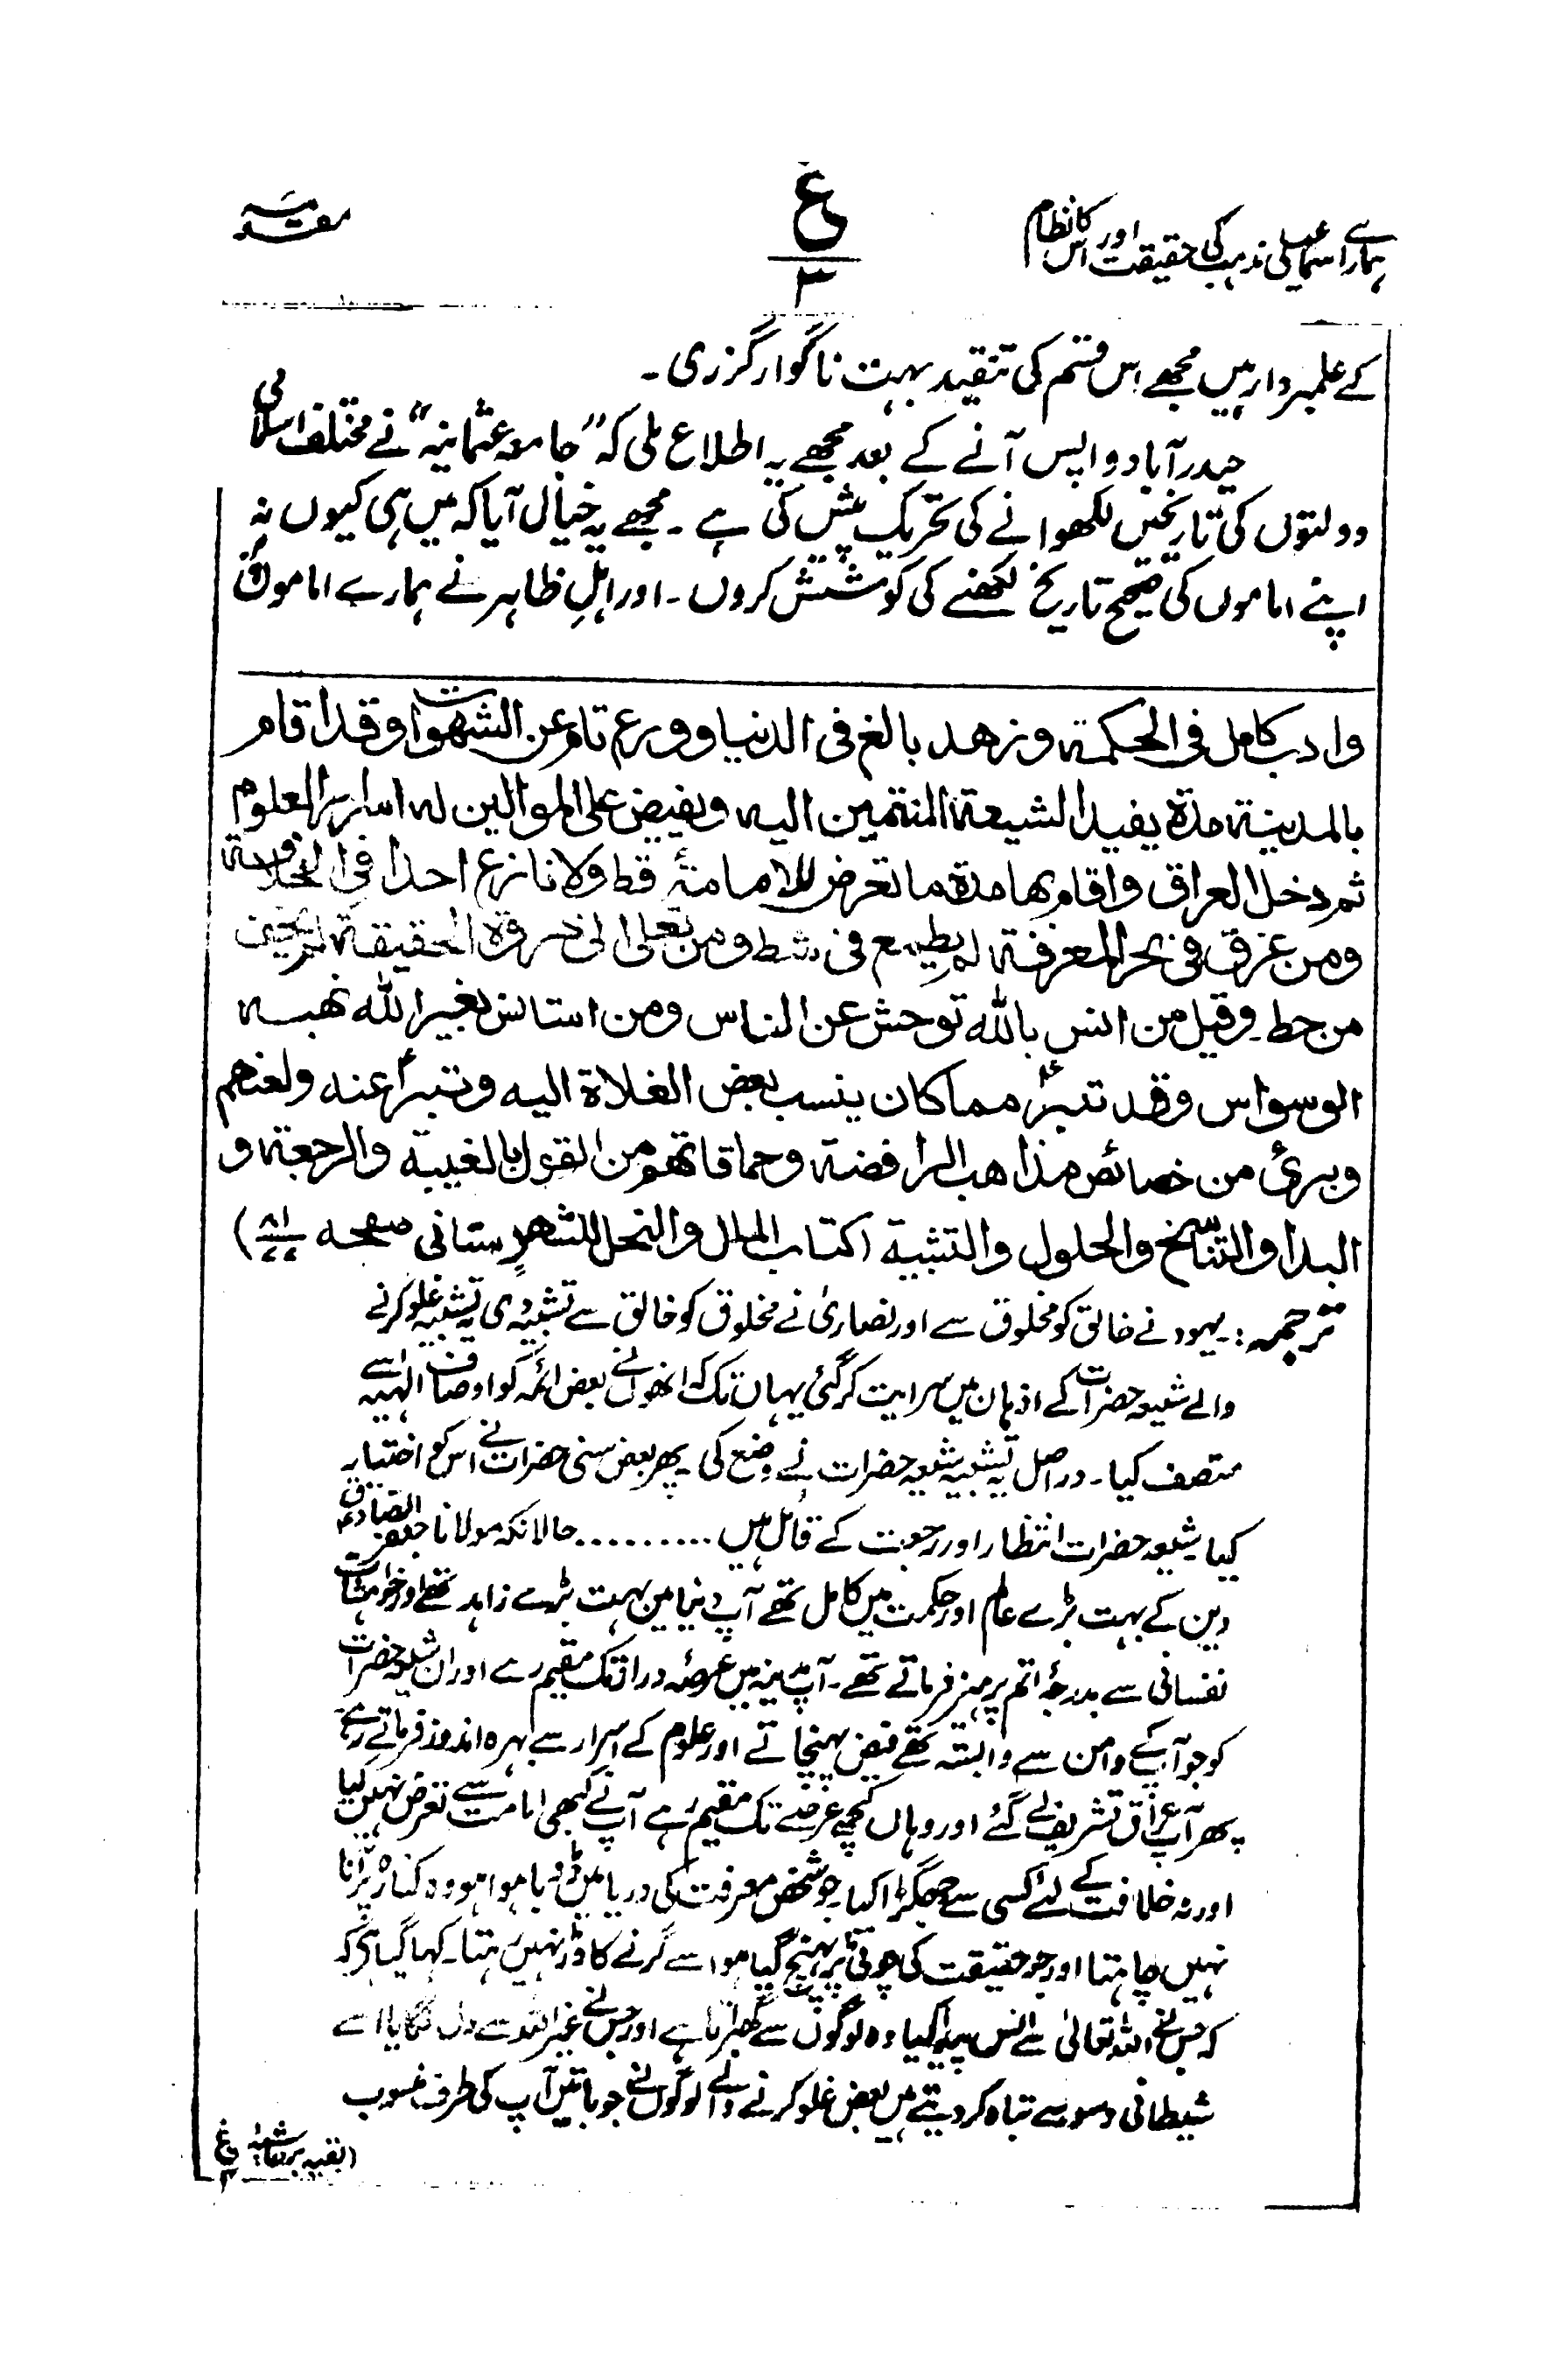 ہمارے اسماعیلی مذہب کی حقیقت اور اس کا نظام
ع
۳
مقدمہ
کے علمبردار ہیں مجھے اس قسم کی تنقید بہت ناگوار گزری۔
حیدرآباد واپس آنے کے بعد مجھے یہ اطلاع ملی کہ "جامعہ عثمانیہ" نے مختلف اسلامی
دولتوں کی تاریخیں لکھوانے کی تحریک پیش کی ہے۔ مجھے یہ خیال آیا کہ میں ہی کیوں نہ
اپنے اماموں کی صحیح تاریخ لکھنے کی کوشش کروں۔ اور اہلِ ظاہر نے ہمارے اماموں کی
وادب كامل فى الحكمة وزهد بالغ فى الدنيا وورع تام عن الشهوات وقد اقام
بالمدينة مدة يفيد الشيعة المنتمين اليه ويفيض على الموالين له اسرار العلوم
ثم دخل العراق واقام بها مدة ما تعرض للامامة قط ولا نازع احدا فى الخلافة
ومن غرق فى بحر المعرفة لم يطمع فى شط ومن تعلى الى ذروة الحقيقة لم يخف
من حط وقيل من انس بالله توحش عن الناس ومن استانس بغير الله نهبه
الوسواس وقد تبرأ مما كان ينسب بعض الغلاة اليه وتبرأ عنه ولعنهم
وبرئ من خصائص مذاهب الرافضة وحماقاتهم من القول بالغيبة والرجعة و
البدا والتناسخ والحلول والتشبيه (كتاب الملل والنحل للشهرستانى صفحه
ترجمہ:۔ یہود نے خالق کو مخلوق سے اور نصاریٰ نے مخلوق کو خالق سے تشبیہ دی یہ تشبیہ غلو کرنے
والے شیعہ حضرات کے اذہان میں سرایت کر گئی یہاں تک کہ انھوں نے بعض ائمہ کو اوصاف الہیہ سے
متصف کیا۔ دراصل یہ تشبیہ شیعہ حضرات نے وضع کی۔ پھر بعض سنی حضرات نے اس کو اختیار
کیا شیعہ حضرات انتظار اور رجعت کے قائل ہیں .......... حالانکہ مولانا جعفر الصادق
دین کے بہت بڑے عالم اور حکمت میں کامل تھے آپ دنیا میں بہت بڑے زاہد تھے اور خواہشات
نفسانی سے بدرجۂ اتم پرہیز فرماتے تھے۔ آپ مدینہ میں عرصۂ دراز تک مقیم رہے اور ان شیعہ حضرات
کو جو آپ کے دامن سے وابستہ تھے فیض پہنچاتے اور علوم کے اسرار سے بہرہ اندوز فرماتے رہے۔
پھر آپ عراق تشریف لے گئے اور وہاں کچھ عرصے تک مقیم رہے آپ نے کبھی امامت سے تعرض نہیں کیا
اور نہ خلافت کے لئے کسی سے جھگڑا کیا جو شخص معرفت کی دریا میں ڈوبا ہوا ہو وہ کنارے پر آنا
نہیں چاہتا اور جو حقیقت کی چوٹی پر پہنچ گیا ہو اسے گرنے کا ڈر نہیں رہتا۔ کہا گیا ہے کہ
کہ جس نے اللہ تعالیٰ سے انس پیدا کیا وہ لوگوں سے گھبراتا ہے اور جس نے غیر اللہ سے دل لگایا اسے
شیطانی وسوسے تباہ کر دیتے ہیں بعض غلو کرنے والے لوگوں نے جو باتیں آپ کی طرف منسوب
(بقیہ برحاشیہ